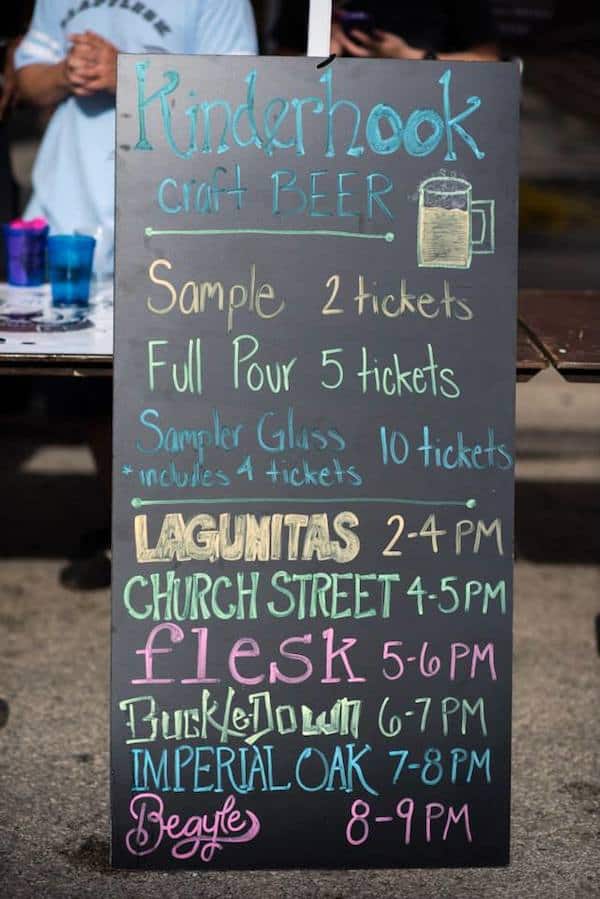 Kinderhook
craft BEER
Sample 2 tickets
Full Pour 5 tickets
Sampler Glass 10 tickets
*includes 4 tickets
LAGUNITAS 2-4 PM
CHURCH STREET 4-5PM
flesk 5-6 PM
BuckleDown 6-7 PM
IMPERIAL OAK 7-8 PM
Begyle 8-9 PM